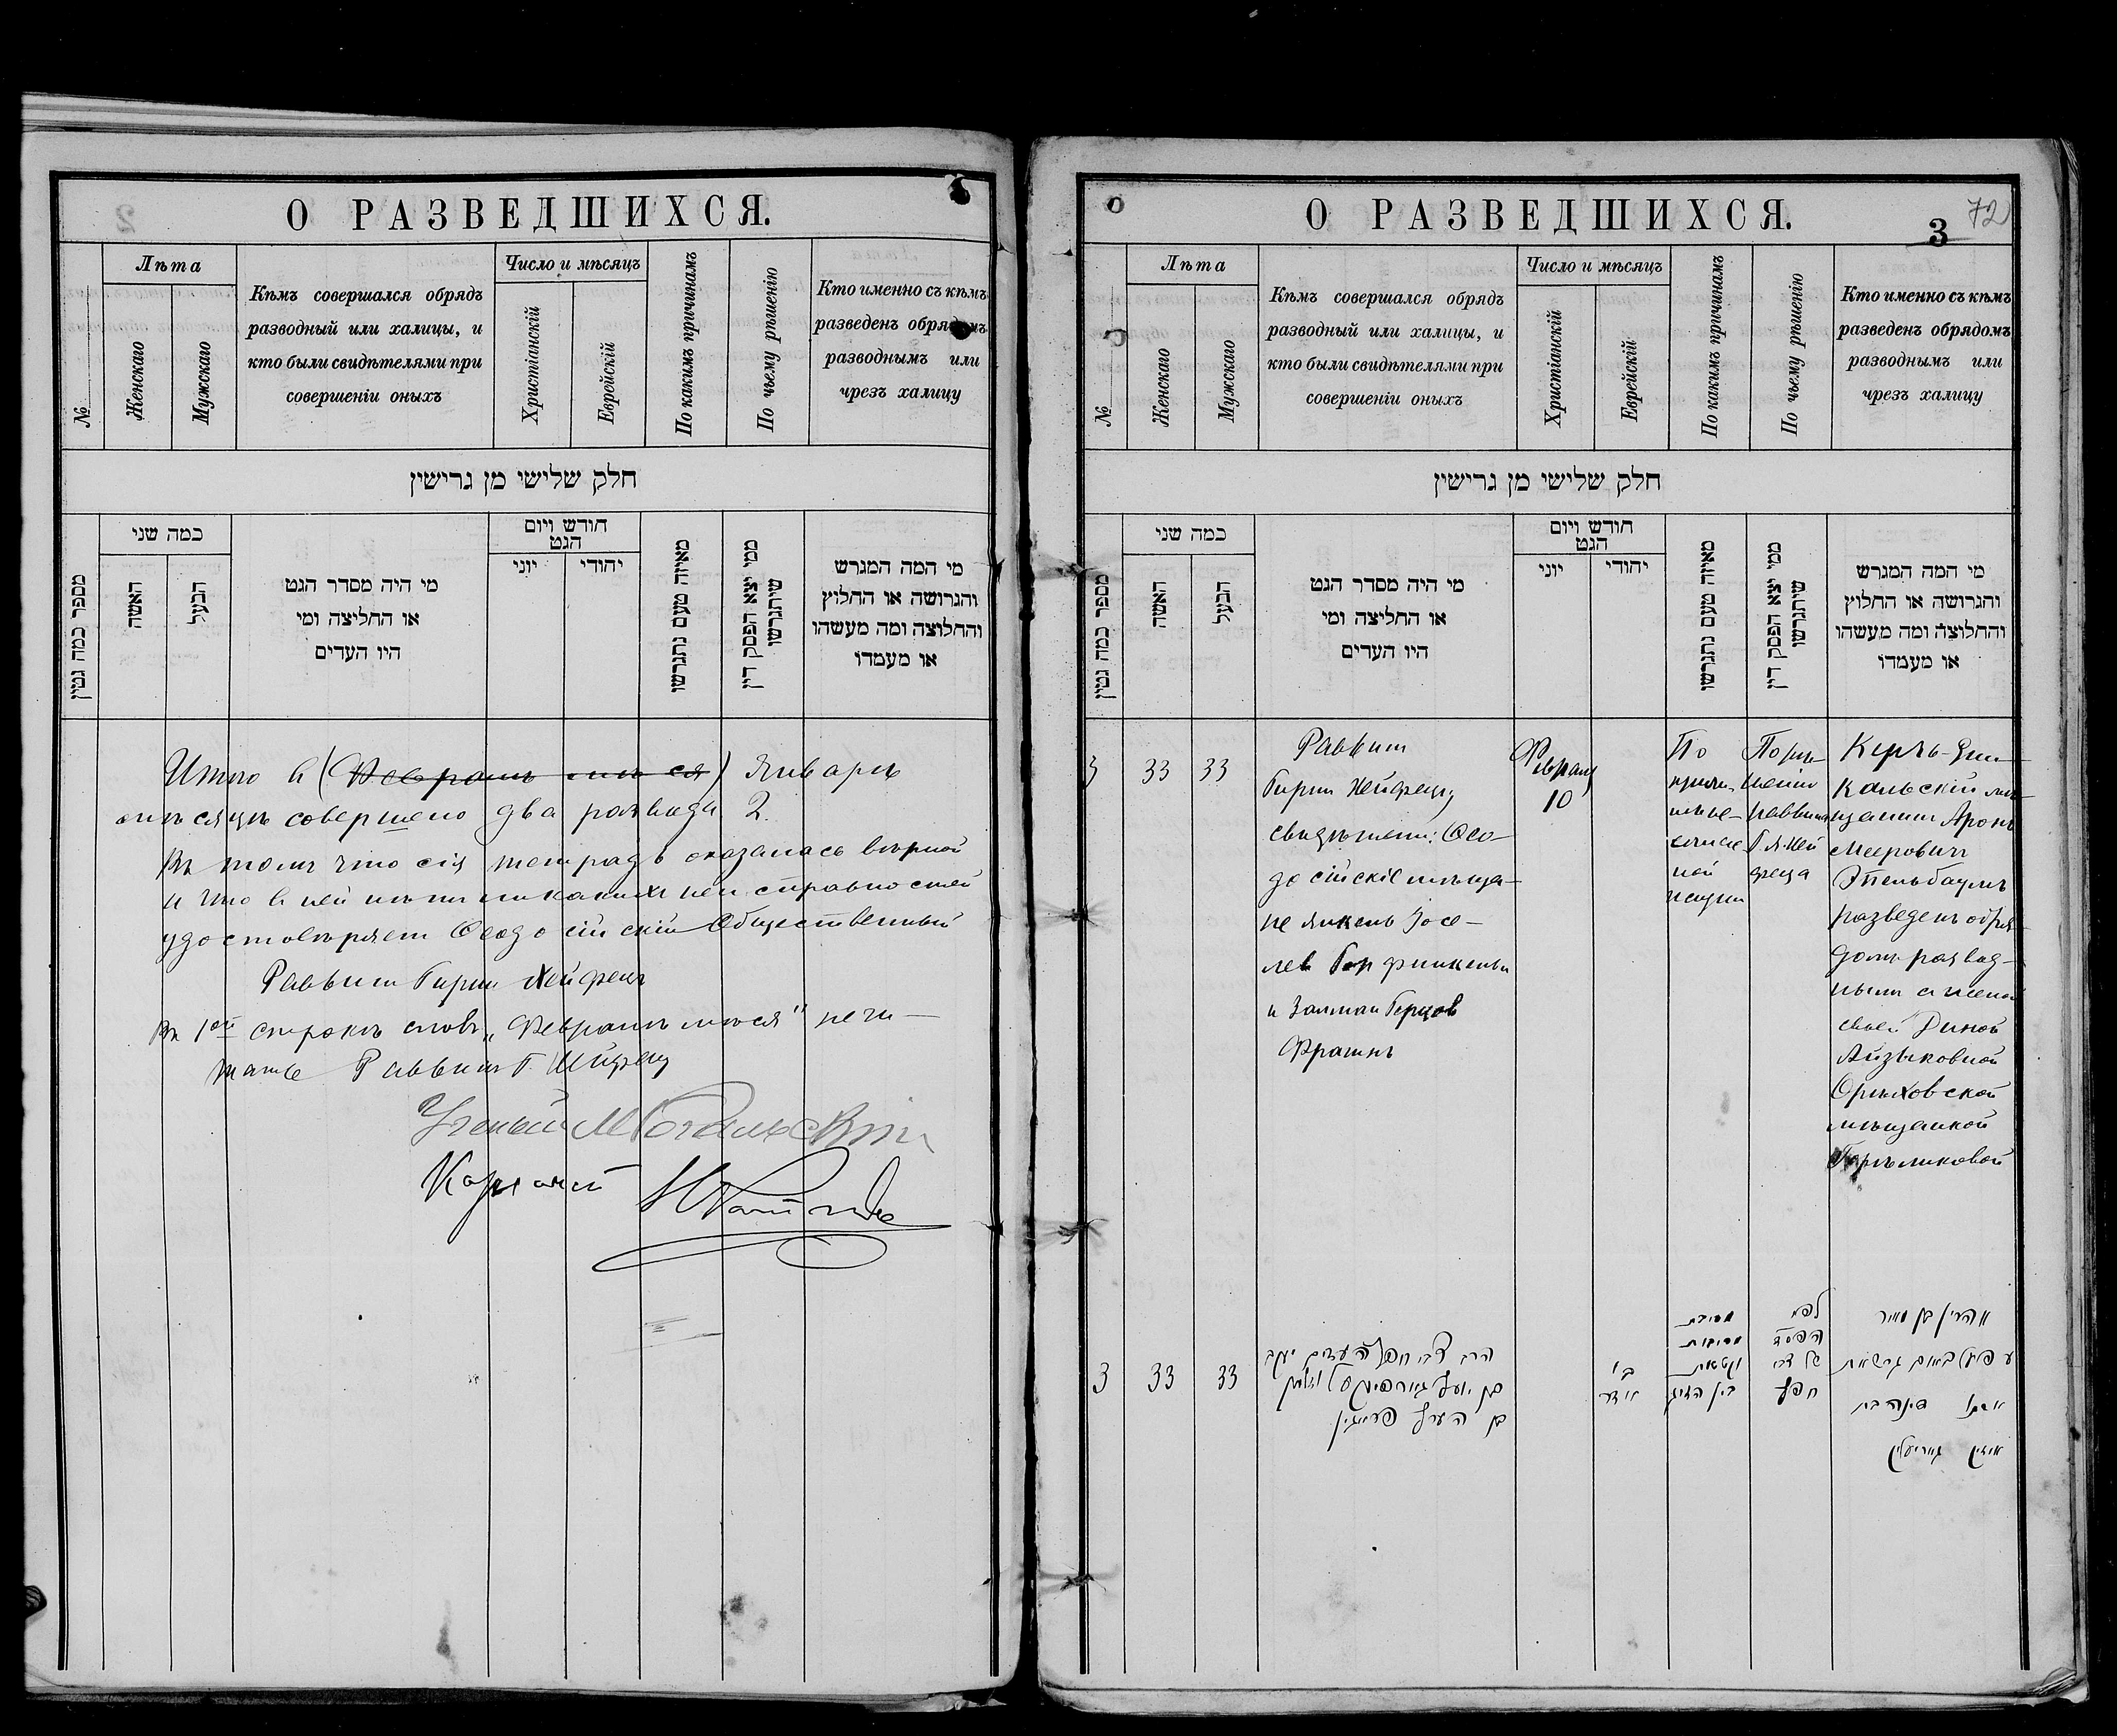 О РАЗВЕДШИХСЯ.
№
Лѣта
Женскаго
Мужскаго
Кѣмъ совершался обрядъ
разводный или халицы, и
кто были свидѣтелями при
совершеніи оныхъ
Число и мѣсяцъ
Христіанскій
Еврейскій
По какимъ причинамъ
По чьему рѣшенію
Кто именно съ кѣмъ
разведенъ обрядомъ
разводнымъ или
чрезъ халицу
חלק שלישי מן גרישין
מספר כמה גטין
כמה שני
האשה
הבעל
מי היה מסדר הגט
או החליצה ומי
היו העדים
חודש ויום
הגט
יוני
יהודי
מאיזה טעם נתגרשו
ממי יצא הפסק דין
שיתגרשו
מי המה המגרש
והגרושה או החלוץ
והחלוצה ומה מעשהו
או מעמדו
Итого в (Февралѣ мѣся) Январѣ
мѣсяцѣ совершено два развода 2.
Въ томъ что сія тетрадь оказалась вѣрной
и что в ней нѣтъ никакихъ неисправностей
удостовѣряетъ Ѳеодосійскій Общественный
Раввинъ Гирш Хейфецъ
Въ 1ой строкѣ слова „Февралѣ мѣся" не чи-
тать Раввинъ Г. Хейфецъ
Ученый
О РАЗВЕДШИХСЯ.
3
72
№
Лѣта
Женскаго
Мужскаго
Кѣмъ совершался обрядъ
разводный или халицы, и
кто были свидѣтелями при
совершеніи оныхъ
Число и мѣсяцъ
Христіанскій
Еврейскій
По какимъ причинамъ
По чьему рѣшенію
Кто именно съ кѣмъ
разведенъ обрядомъ
разводнымъ или
чрезъ халицу
חלק שלישי מן גרישין
מספר כמה גטין
כמה שני
האשה
הבעל
מי היה מסדר הגט
או החליצה ומי
היו העדים
חודש ויום
הגט
יוני
יהודי
מאיזה טעם נתגרשו
ממי יצא הפסק דין
שיתגרשו
מי המה המגרש
והגרושה או החלוץ
והחלוצה ומה מעשהו
או מעמדו
3
33
33
Раввинъ
Гирш Хейфецъ
свидѣтели: Ѳео-
досійскіе мѣща-
не Янкель Іосе-
лев Горфинкель
и Залман Герцов
Февраля
10
По
Рѣше-
нію
раввина
Г. Хей
феца
Керчь-Ени-
кальскій мѣ-
щанинъ Аронъ
Меерович
разведенъ обря-
домъ развод-
нымъ съ женой
своей Диной
Айзыковной
Орѣховской
мѣщанкой
3
33
33
הרב צבי חפץ העדים יעקב
אדר
של רבי
חפץ
אהרן בן מאיר
אשתו דינה בת